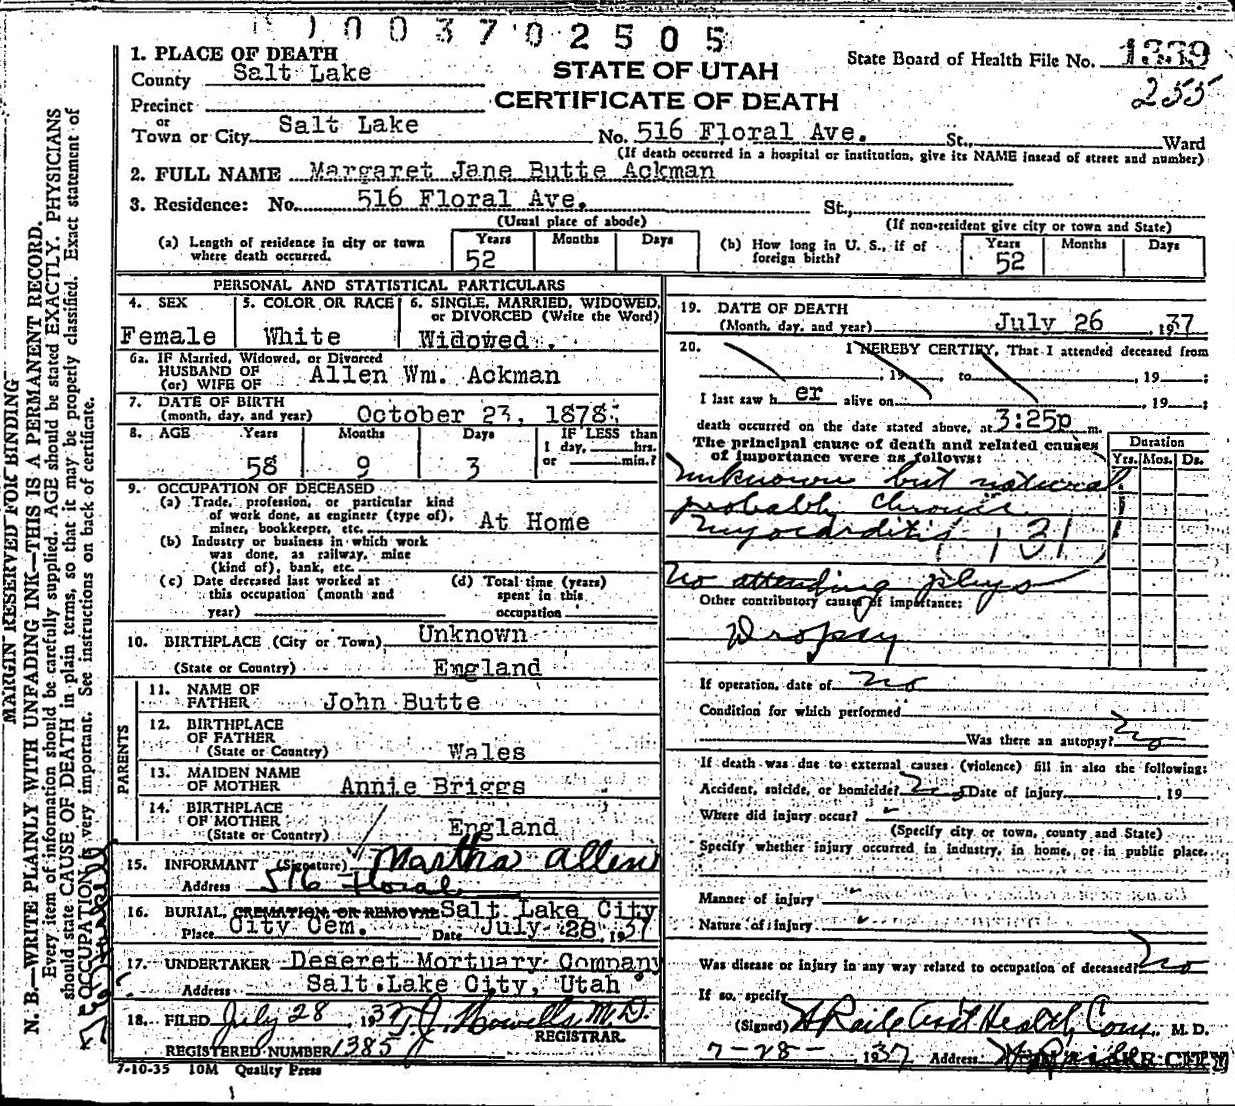 1003702505
1. PLACE OF DEATH
County Salt Lake
STATE OF UTAH
State Board of Health File No. 1339
255
Precinct
CERTIFICATE OF DEATH
or
Town or City Salt Lake No. 516 Floral Ave. St., Ward
(If death occurred in a hospital or institution, give its NAME instead of street and number)
2. FULL NAME Margaret Jane Butte Ackman
3. Residence: No. 516 Floral Ave. St.,
(Usual place of abode) (If non-resident give city or town and State)
(a) Length of residence in city or town where death occurred. Years 52 Months Days
(b) How long in U. S., if of foreign birth? Years 52 Months Days
PERSONAL AND STATISTICAL PARTICULARS
4. SEX Female
5. COLOR OR RACE White
6. SINGLE, MARRIED, WIDOWED, or DIVORCED (Write the Word) Widowed.
6a. IF Married, Widowed, or Divorced
HUSBAND OF
(or) WIFE OF Allen Wm. Ackman
7. DATE OF BIRTH
(month, day, and year) October 23, 1878
8. AGE Years 58 Months 9 Days 3 IF LESS than 1 day, hrs. or min.?
9. OCCUPATION OF DECEASED
(a) Trade, profession, or particular kind
of work done, as engineer (type of),
miner, bookkeeper, etc. At Home
(b) Industry or business in which work
was done, as railway, mine
(kind of), bank, etc.
(c) Date deceased last worked at
this occupation (month and
year)
(d) Total time (years)
spent in this
occupation
10. BIRTHPLACE (City or Town) Unknown
(State or Country) England
PARENTS
11. NAME OF
FATHER John Butte
12. BIRTHPLACE
OF FATHER
(State or Country) Wales
13. MAIDEN NAME
OF MOTHER Annie Briggs
14. BIRTHPLACE
OF MOTHER
(State or Country) England
15. INFORMANT (Signature) Martha Allen
Address 516 Floral
16. BURIAL, CREMATION, OR REMOVAL Salt Lake City
Place City Cem. Date July 28, 1937
17. UNDERTAKER Deseret Mortuary Company
Address Salt Lake City, Utah
18. FILED July 28, 1937 T.J. Howells M.D.
REGISTRAR.
REGISTERED NUMBER 1385
7-10-35 10M Quality Press
19. DATE OF DEATH
(Month, day, and year) July 26, 1937
20. I HEREBY CERTIFY, That I attended deceased from
, 19 , to , 19 ;
I last saw h er alive on , 19 ;
death occurred on the date stated above, at 3:25p m.
The principal cause of death and related causes
of importance were as follows:
Duration
Yrs. Mos. Ds.
Unknown but natural
probably chronic
myocarditis 131
No attending phys
Other contributory causes of importance:
Dropsy
If operation, date of no
Condition for which performed
Was there an autopsy? No
If death was due to external causes (violence) fill in also the following:
Accident, suicide, or homicide? No Date of injury , 19
Where did injury occur?
(Specify city or town, county and State)
Specify whether injury occurred in industry, in home, or in public place.
Manner of injury
Nature of injury
Was disease or injury in any way related to occupation of deceased? No
If so, specify
(Signed) Health Com. M. D.
7-28- 1937 Address LAKE CITY
MARGIN RESERVED FOR BINDING
N. B.—WRITE PLAINLY WITH UNFADING INK—THIS IS A PERMANENT RECORD.
Every item of information should be carefully supplied. AGE should be stated EXACTLY. PHYSICIANS
should state CAUSE OF DEATH in plain terms, so that it may be properly classified. Exact statement of
OCCUPATION is very important. See instructions on back of certificate.